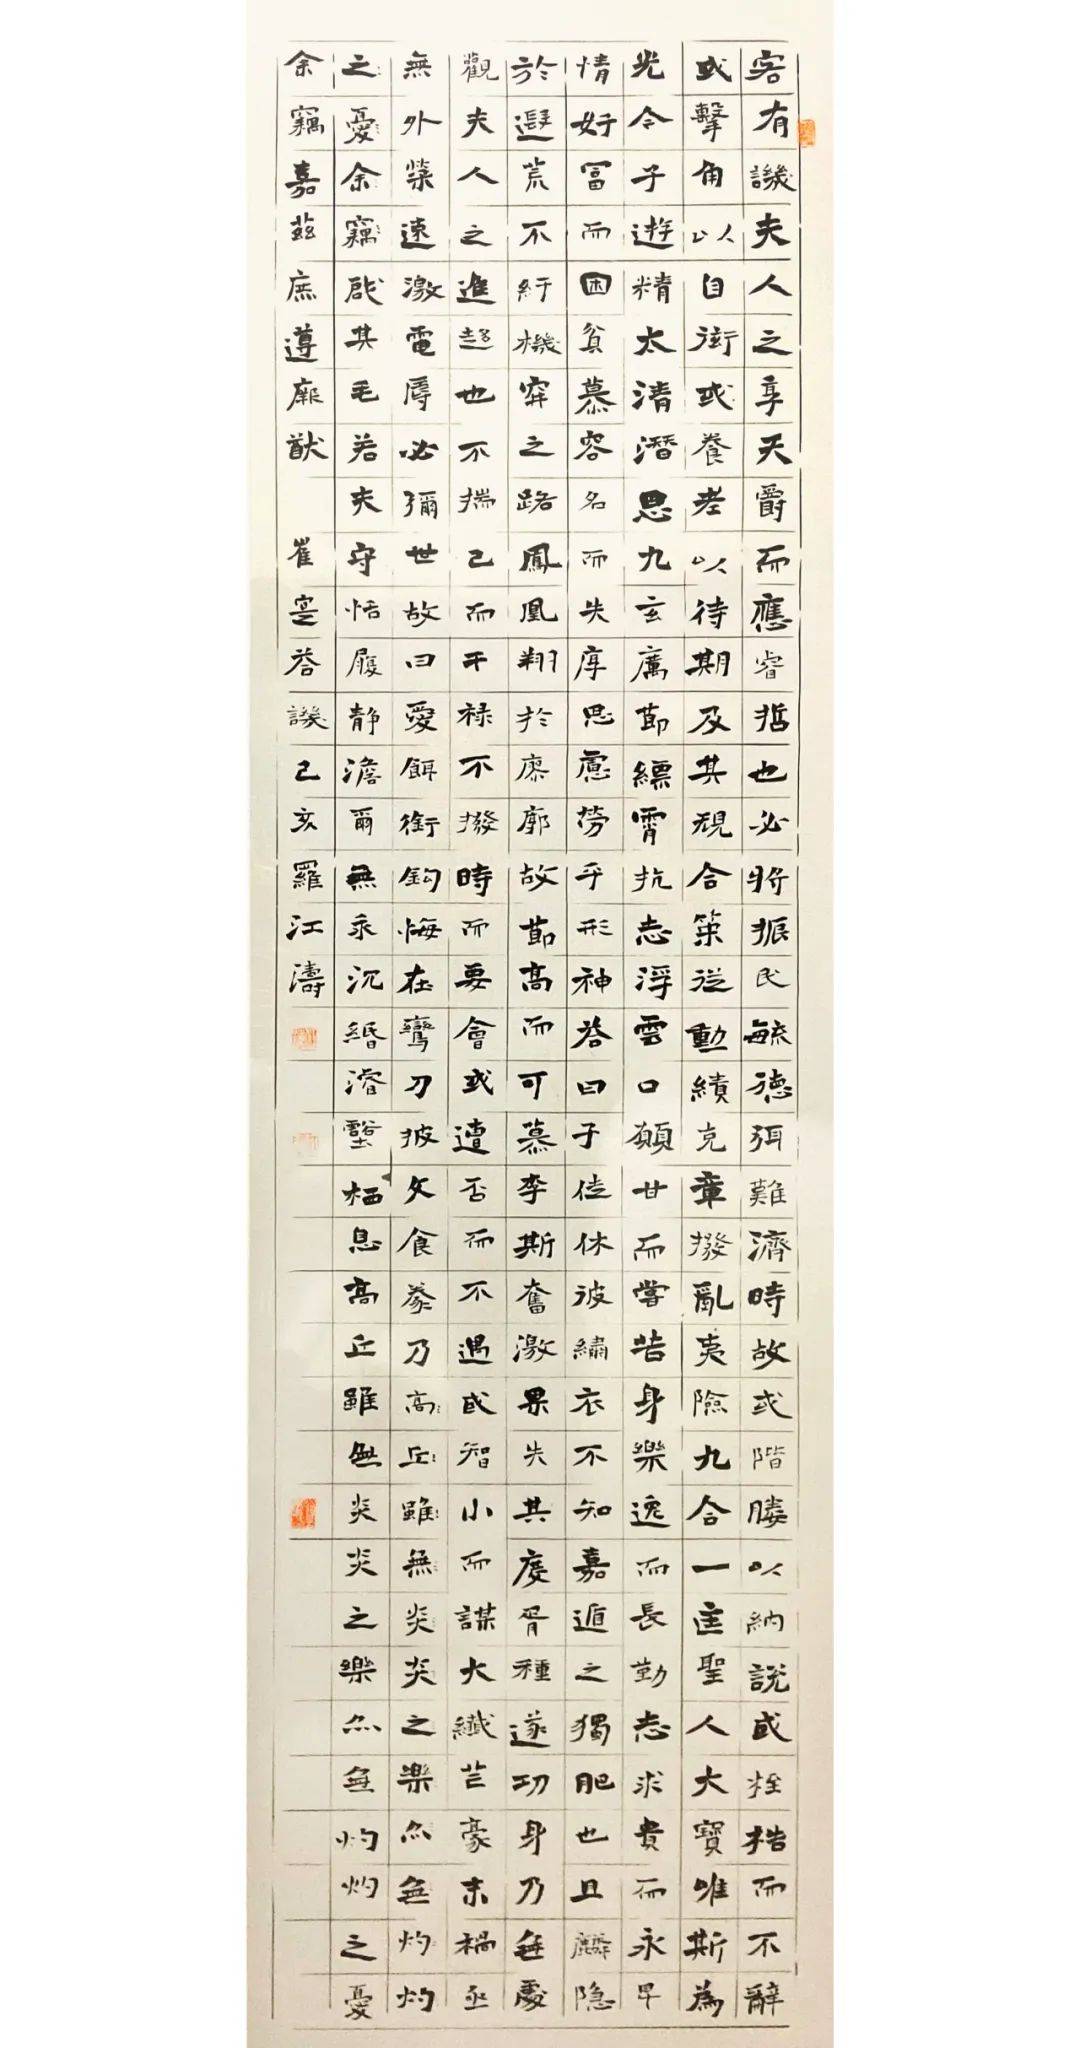 客有譏夫人之享天爵而應睿哲也必將振民毓德弭難濟時故或階媵以納說或桎梏而不辭
或擊角以自衒或養老以待期及其規合策從勳績克章撥亂夷險九合一匡聖人大寶唯斯為
光今子遊精太清潛思九玄厲節縹霄抗志浮雲口願甘而嘗苦身樂逸而長勤志求貴而永卑
情好富而困貧慕容名而失厚思慮勞乎形神答曰子徒休彼繡衣不知嘉遁之獨肥也且麟隱
於遐荒不紆機穽之路鳳凰翔於寥廓故節高而可慕李斯奮激果失其度胥種遂功身乃無處
觀夫人之進趍也不揣己而干祿不撥時而要會或遭否而不遇或智小而謀大纖芒豪末禍亟
無外榮速激電辱必彌世故曰愛餌銜鈎悔在鸞刀披文食豢乃高丘雖無炎炎之樂亦無灼灼
之憂余竊啟其毛若夫守恬履靜澹爾無求沉緡濬壑栖息高丘雖無炎炎之樂亦無灼灼之憂
余竊嘉茲庶遵厥猷 崔寔答譏己亥羅江濤